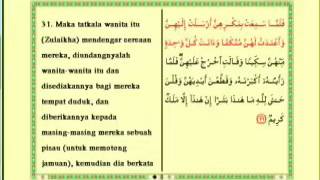 31. Maka tatkala wanita itu
(Zulaikha) mendengar cercaan
mereka, diundangnyalah
wanita-wanita itu dan
disediakannya bagi mereka
tempat duduk, dan
diberikannya kepada
masing-masing mereka sebuah
pisau (untuk memotong
jamuan), kemudian dia berkata
فَلَمَّا سَمِعَتْ بِمَكْرِهِنَّ أَرْسَلَتْ إِلَيْهِنَّ
وَأَعْتَدَتْ لَهُنَّ مُتَّكَـًٔا وَءَاتَتْ كُلَّ وَٰحِدَةٍ
مِّنْهُنَّ سِكِّينًا وَقَالَتِ ٱخْرُجْ عَلَيْهِنَّ فَلَمَّا
رَأَيْنَهُۥٓ أَكْبَرْنَهُۥ وَقَطَّعْنَ أَيْدِيَهُنَّ وَقُلْنَ
حَٰشَ لِلَّهِ مَا هَٰذَا بَشَرًا إِنْ هَٰذَآ إِلَّا مَلَكٌ
كَرِيمٌ ٣١